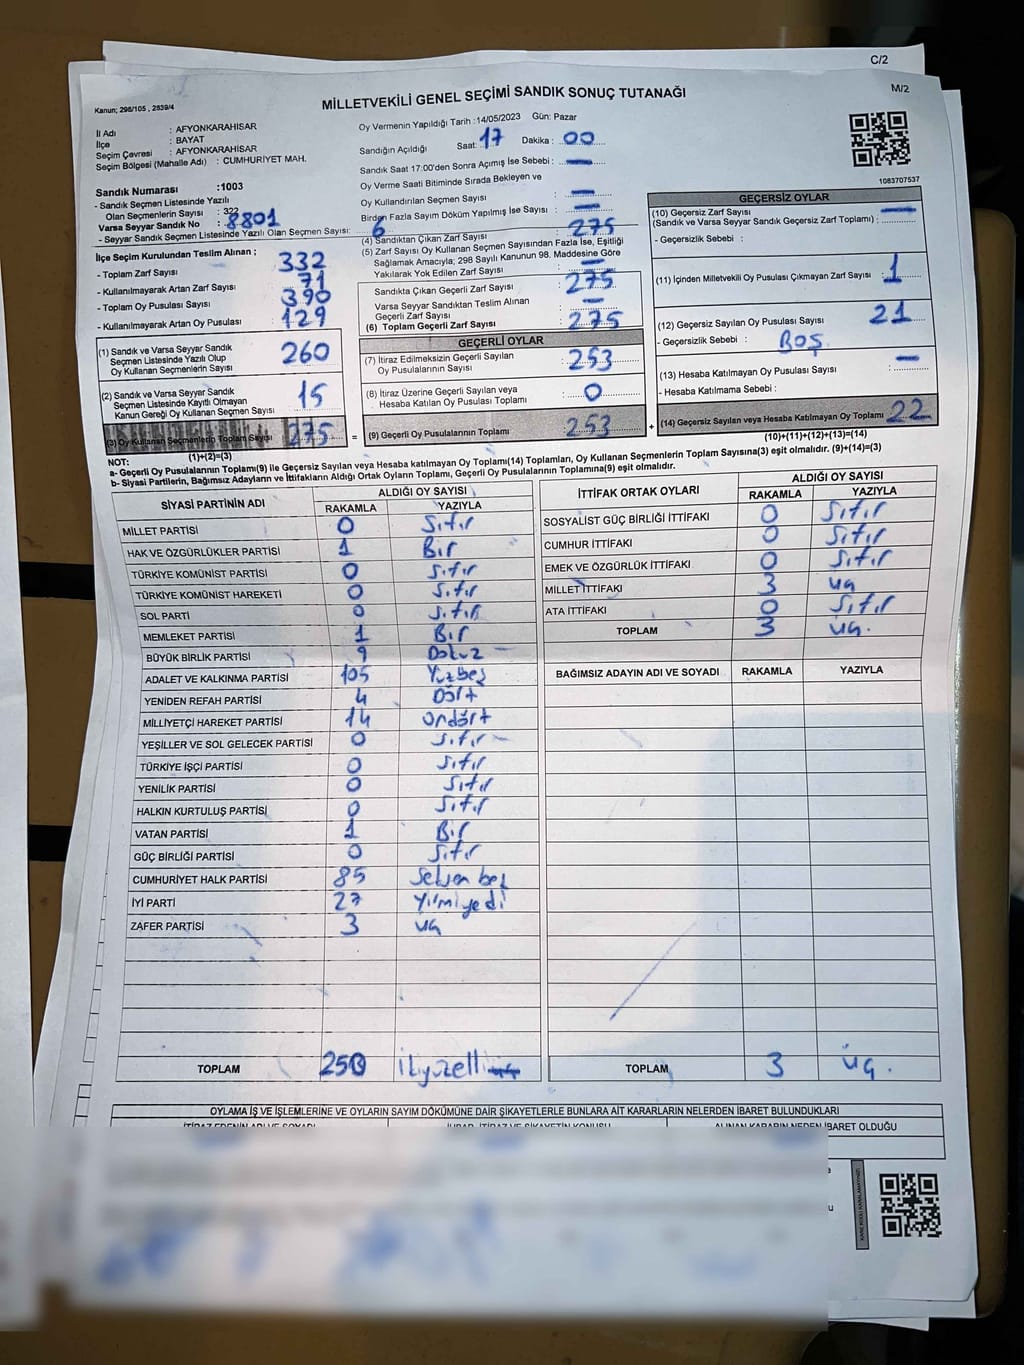 C/2
M/2
Kanun; 298/105 , 2839/4
MİLLETVEKİLİ GENEL SEÇİMİ SANDIK SONUÇ TUTANAĞI
İl Adı : AFYONKARAHİSAR
İlçe : BAYAT
Seçim Çevresi : AFYONKARAHİSAR
Seçim Bölgesi (Mahalle Adı) : CUMHURİYET MAH.
Sandık Numarası :1003
- Sandık Seçmen Listesinde Yazılı
Olan Seçmenlerin Sayısı : 322
Varsa Seyyar Sandık No : 8801
- Seyyar Sandık Seçmen Listesinde Yazılı Olan Seçmen Sayısı: 6
İlçe Seçim Kurulundan Teslim Alınan ;
- Toplam Zarf Sayısı 332
- Kullanılmayarak Artan Zarf Sayısı 71
- Toplam Oy Pusulası Sayısı 390
- Kullanılmayarak Artan Oy Pusulası : 129
(1) Sandık ve Varsa Seyyar Sandık
Seçmen Listesinde Yazılı Olup
Oy Kullanan Seçmenlerin Sayısı : 260
(2) Sandık ve Varsa Seyyar Sandık
Seçmen Listesinde Kayıtlı Olmayan
Kanun Gereği Oy Kullanan Seçmen Sayısı : 15
(3) Oy Kullanan Seçmenlerin Toplam Sayısı : 275
(1)+(2)=(3)
Oy Vermenin Yapıldığı Tarih : 14/05/2023 Gün: Pazar
Sandığın Açıldığı Saat: 17 Dakika : 00
Sandık Saat 17:00'den Sonra Açımış İse Sebebi : —
Oy Verme Saati Bitiminde Sırada Bekleyen ve
Oy Kullandırılan Seçmen Sayısı : —
Birden Fazla Sayım Döküm Yapılmış İse Sayısı : —
(4) Sandıktan Çıkan Zarf Sayısı : 275
(5) Zarf Sayısı Oy Kullanan Seçmen Sayısından Fazla İse, Eşitliği
Sağlamak Amacıyla; 298 Sayılı Kanunun 98. Maddesine Göre
Yakılarak Yok Edilen Zarf Sayısı : —
Sandıkta Çıkan Geçerli Zarf Sayısı : 275
Varsa Seyyar Sandıktan Teslim Alınan
Geçerli Zarf Sayısı : —
(6) Toplam Geçerli Zarf Sayısı : 275
GEÇERLİ OYLAR
(7) İtiraz Edilmeksizin Geçerli Sayılan
Oy Pusulalarının Sayısı : 253
(8) İtiraz Üzerine Geçerli Sayılan veya
Hesaba Katılan Oy Pusulası Toplamı : 0
= (9) Geçerli Oy Pusulalarının Toplamı : 253 +
1083707537
GEÇERSİZ OYLAR
(10) Geçersiz Zarf Sayısı
(Sandık ve Varsa Seyyar Sandık Geçersiz Zarf Toplamı) : —
- Geçersizlik Sebebi :
(11) İçinden Milletvekili Oy Pusulası Çıkmayan Zarf Sayısı : 1
(12) Geçersiz Sayılan Oy Pusulası Sayısı : 21
- Geçersizlik Sebebi : BOŞ
(13) Hesaba Katılmayan Oy Pusulası Sayısı : —
- Hesaba Katılmama Sebebi :
(14) Geçersiz Sayılan veya Hesaba Katılmayan Oy Toplamı : 22
(10)+(11)+(12)+(13)=(14)
NOT:
a- Geçerli Oy Pusulalarının Toplamı(9) ile Geçersiz Sayılan veya Hesaba katılmayan Oy Toplamı(14) Toplamları, Oy Kullanan Seçmenlerin Toplam Sayısına(3) eşit olmalıdır. (9)+(14)=(3)
b- Siyasi Partilerin, Bağımsız Adayların ve İttifakların Aldığı Ortak Oyların Toplamı, Geçerli Oy Pusulalarının Toplamına(9) eşit olmalıdır.
SİYASİ PARTİNİN ADI ALDIĞI OY SAYISI
RAKAMLA YAZIYLA
MİLLET PARTİSİ 0 Sıfır
HAK VE ÖZGÜRLÜKLER PARTİSİ 1 Bir
TÜRKİYE KOMÜNİST PARTİSİ 0 Sıfır
TÜRKİYE KOMÜNİST HAREKETİ 0 Sıfır
SOL PARTİ 0 Sıfır
MEMLEKET PARTİSİ 1 Bir
BÜYÜK BİRLİK PARTİSİ 9 Dokuz
ADALET VE KALKINMA PARTİSİ 105 Yüzbeş
YENİDEN REFAH PARTİSİ 4 Dört
MİLLİYETÇİ HAREKET PARTİSİ 14 Ondört
YEŞİLLER VE SOL GELECEK PARTİSİ 0 Sıfır
TÜRKİYE İŞÇİ PARTİSİ 0 Sıfır
YENİLİK PARTİSİ 0 Sıfır
HALKIN KURTULUŞ PARTİSİ 0 Sıfır
VATAN PARTİSİ 1 Bir
GÜÇ BİRLİĞİ PARTİSİ 0 Sıfır
CUMHURİYET HALK PARTİSİ 85 Seksen beş
İYİ PARTİ 27 Yirmiyedi
ZAFER PARTİSİ 3 üç
TOPLAM 250 İkiyüzelli
İTTİFAK ORTAK OYLARI ALDIĞI OY SAYISI
RAKAMLA YAZIYLA
SOSYALİST GÜÇ BİRLİĞİ İTTİFAKI 0 Sıfır
CUMHUR İTTİFAKI 0 Sıfır
EMEK VE ÖZGÜRLÜK İTTİFAKI 0 Sıfır
MİLLET İTTİFAKI 3 üç
ATA İTTİFAKI 0 Sıfır
TOPLAM 3 üç.
BAĞIMSIZ ADAYIN ADI VE SOYADI RAKAMLA YAZIYLA
TOPLAM 3 üç.
OYLAMA İŞ VE İŞLEMLERİNE VE OYLARIN SAYIM DÖKÜMÜNE DAİR ŞİKAYETLERLE BUNLARA AİT KARARLARIN NELERDEN İBARET BULUNDUKLARI
İTİRAZ EDENİN ADI VE SOYADI İHBAR, İTİRAZ VE ŞİKAYETİN KONUSU ALINAN KARARIN NEDEN İBARET OLDUĞU